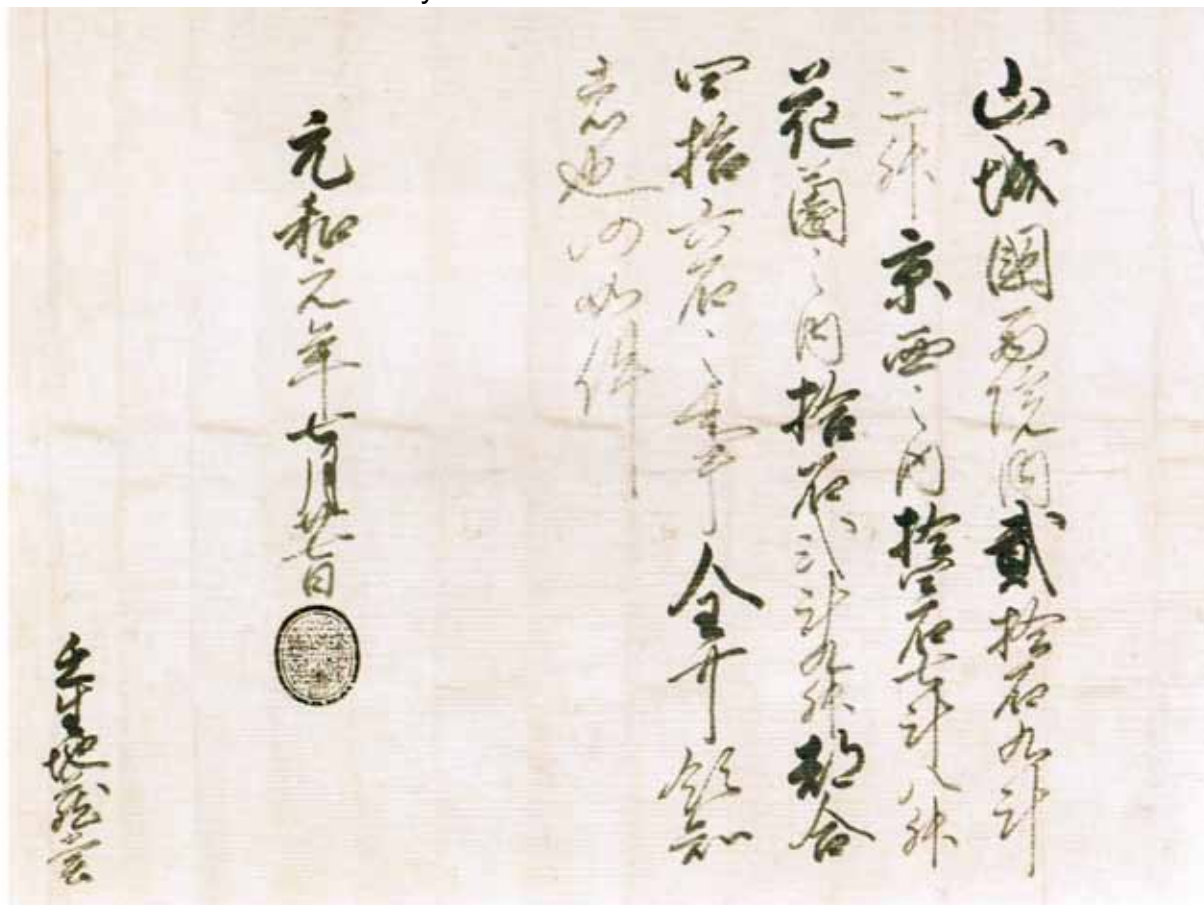 山城國西院内貳拾石九斗
三升京西之内拾四石七斗八升
花薗之内拾石弐斗九升都合
四拾六石之事全可領知
者也仍如件
元和元年七月廿七日
壬生地蔵堂